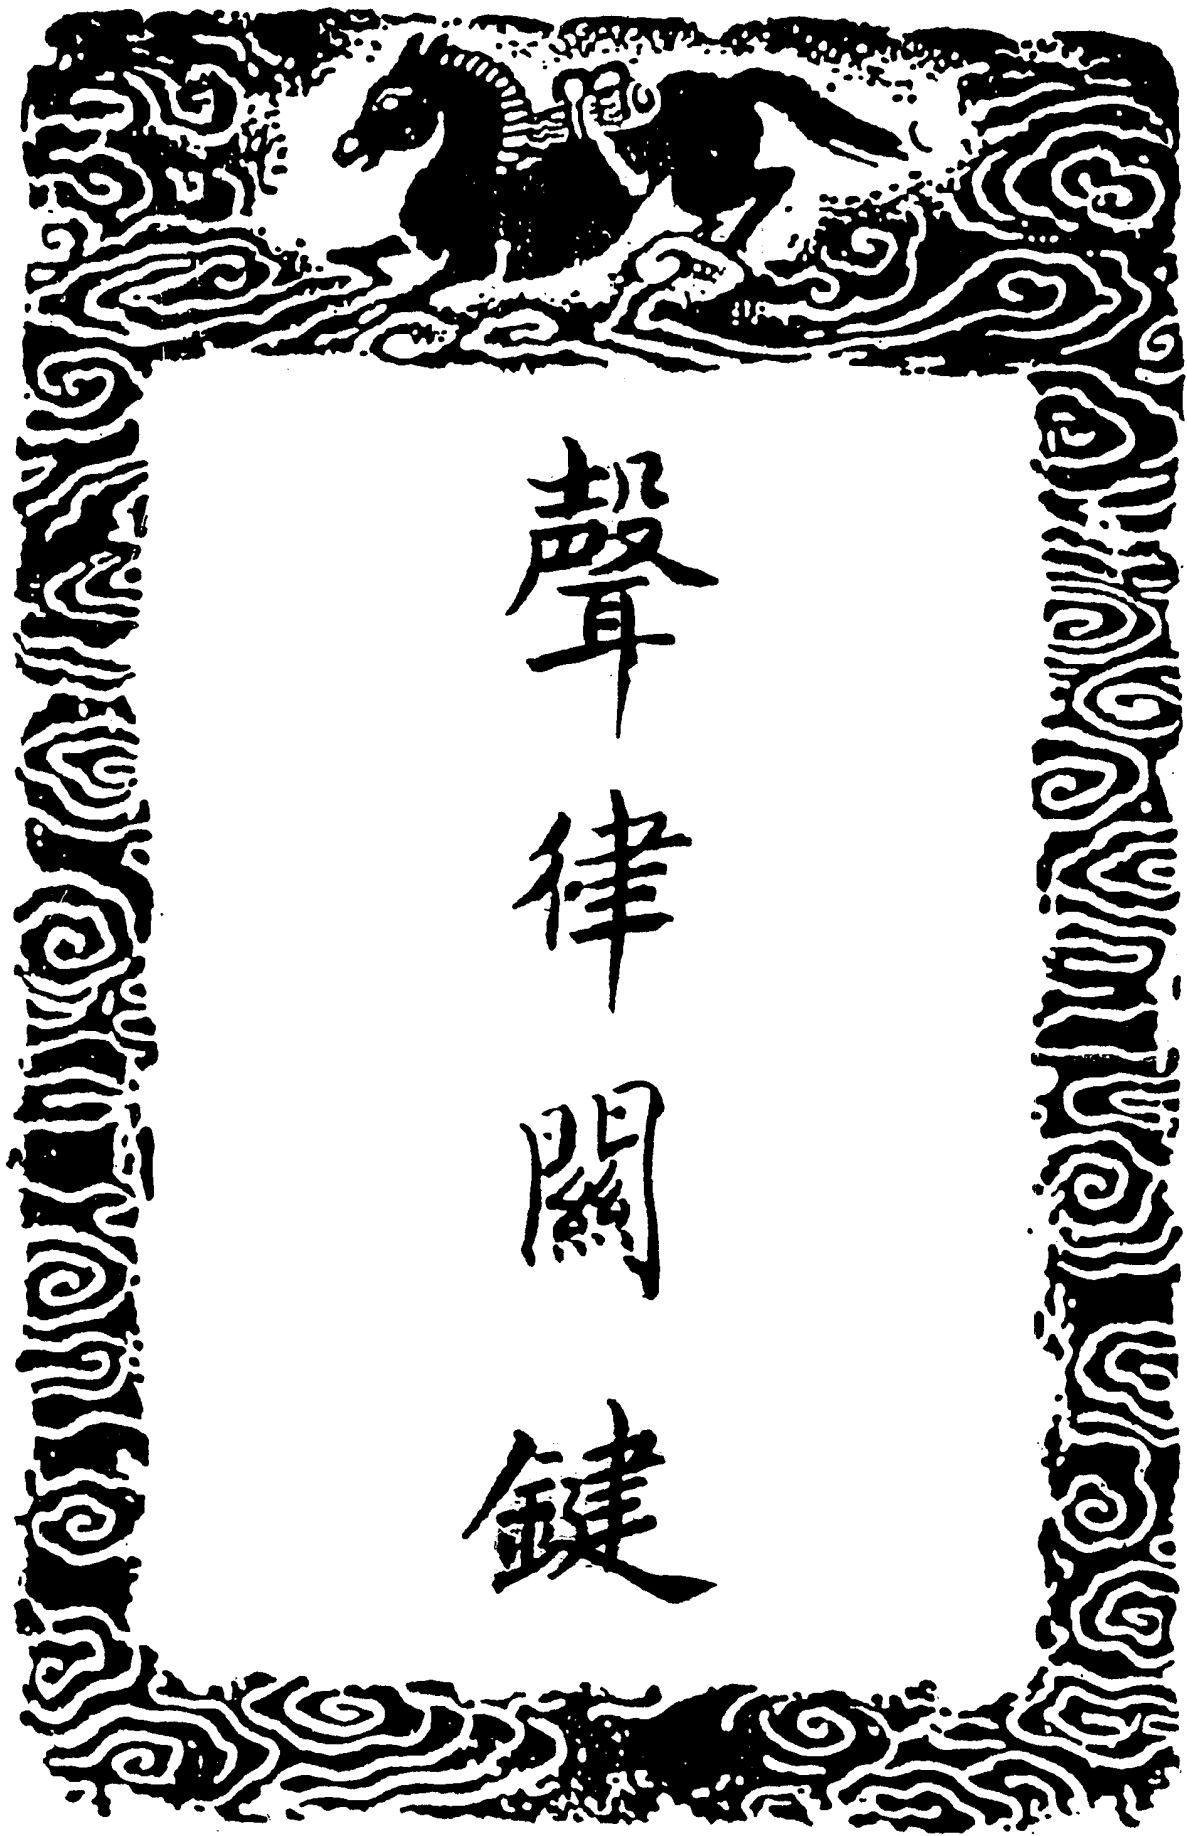 聲律關鍵